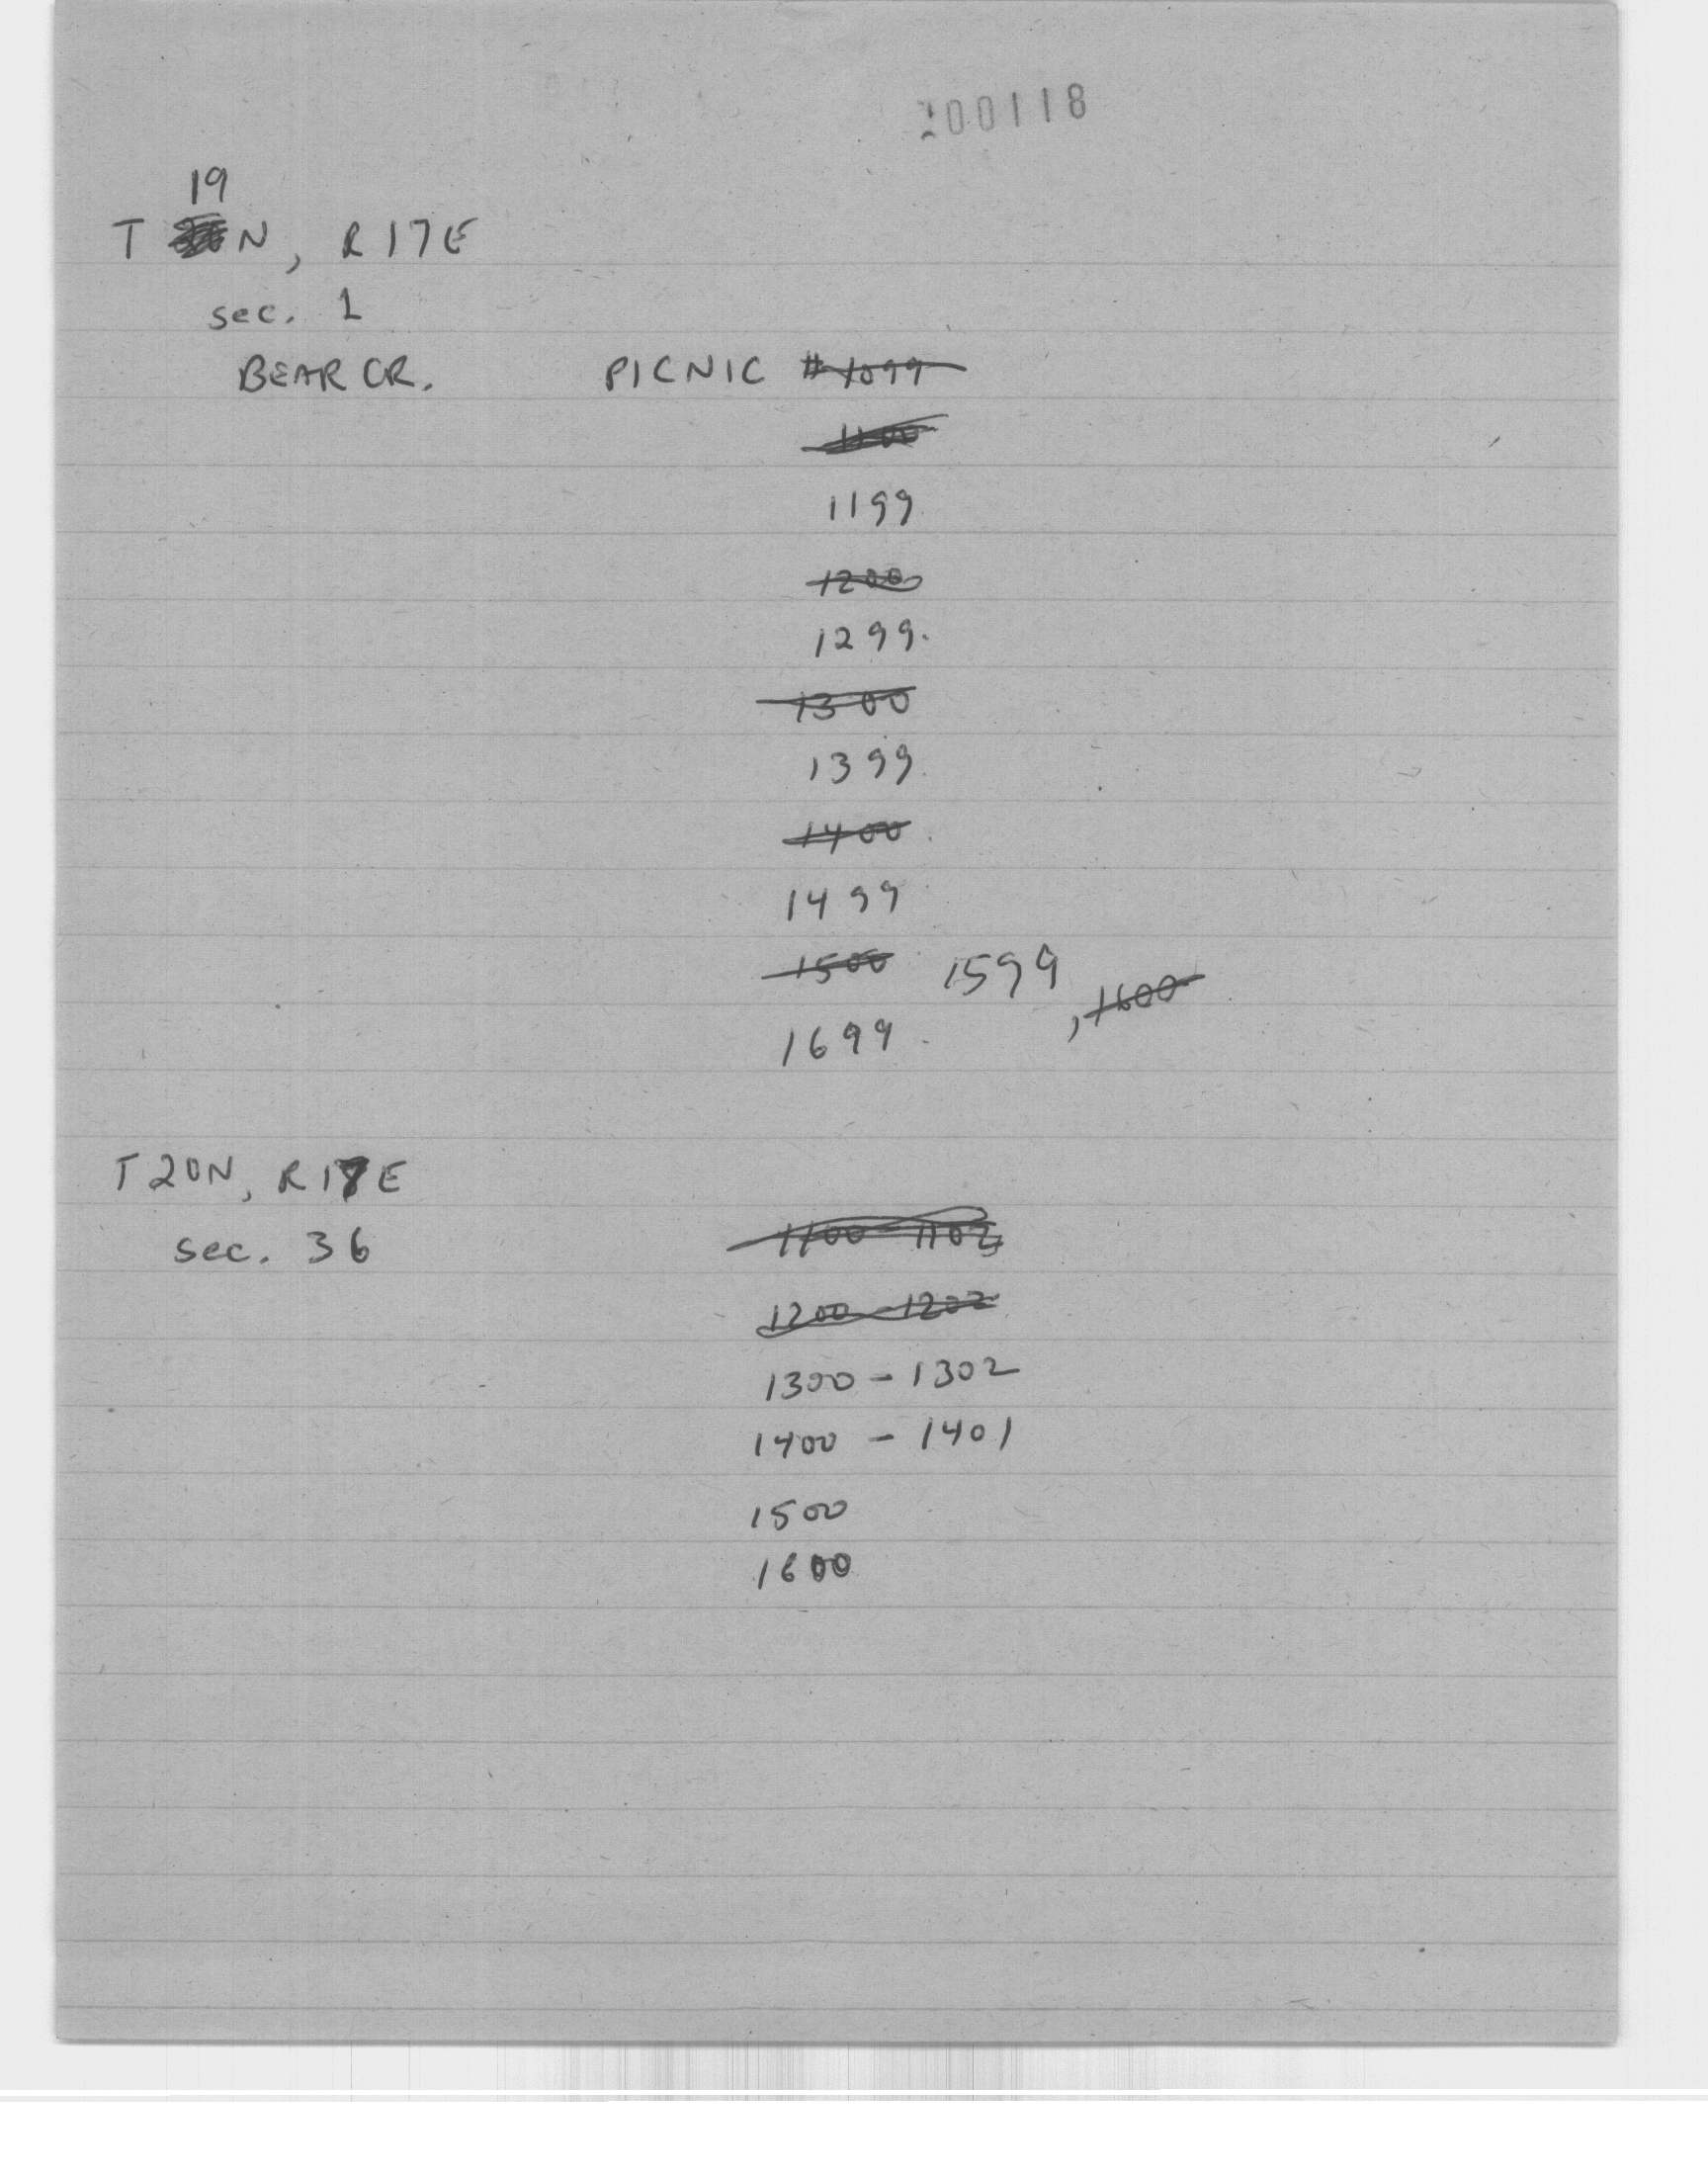 200118
19
T N, R17E
sec. 1
BEAR CR. PICNIC #1099
1100
1199
1200
1299.
1300
1399
1400
1499
1500 1599, 1600
1699
T20N, R17E
sec. 36 1100-1102
1200-1202
1300-1302
1400-1401
1500
1600